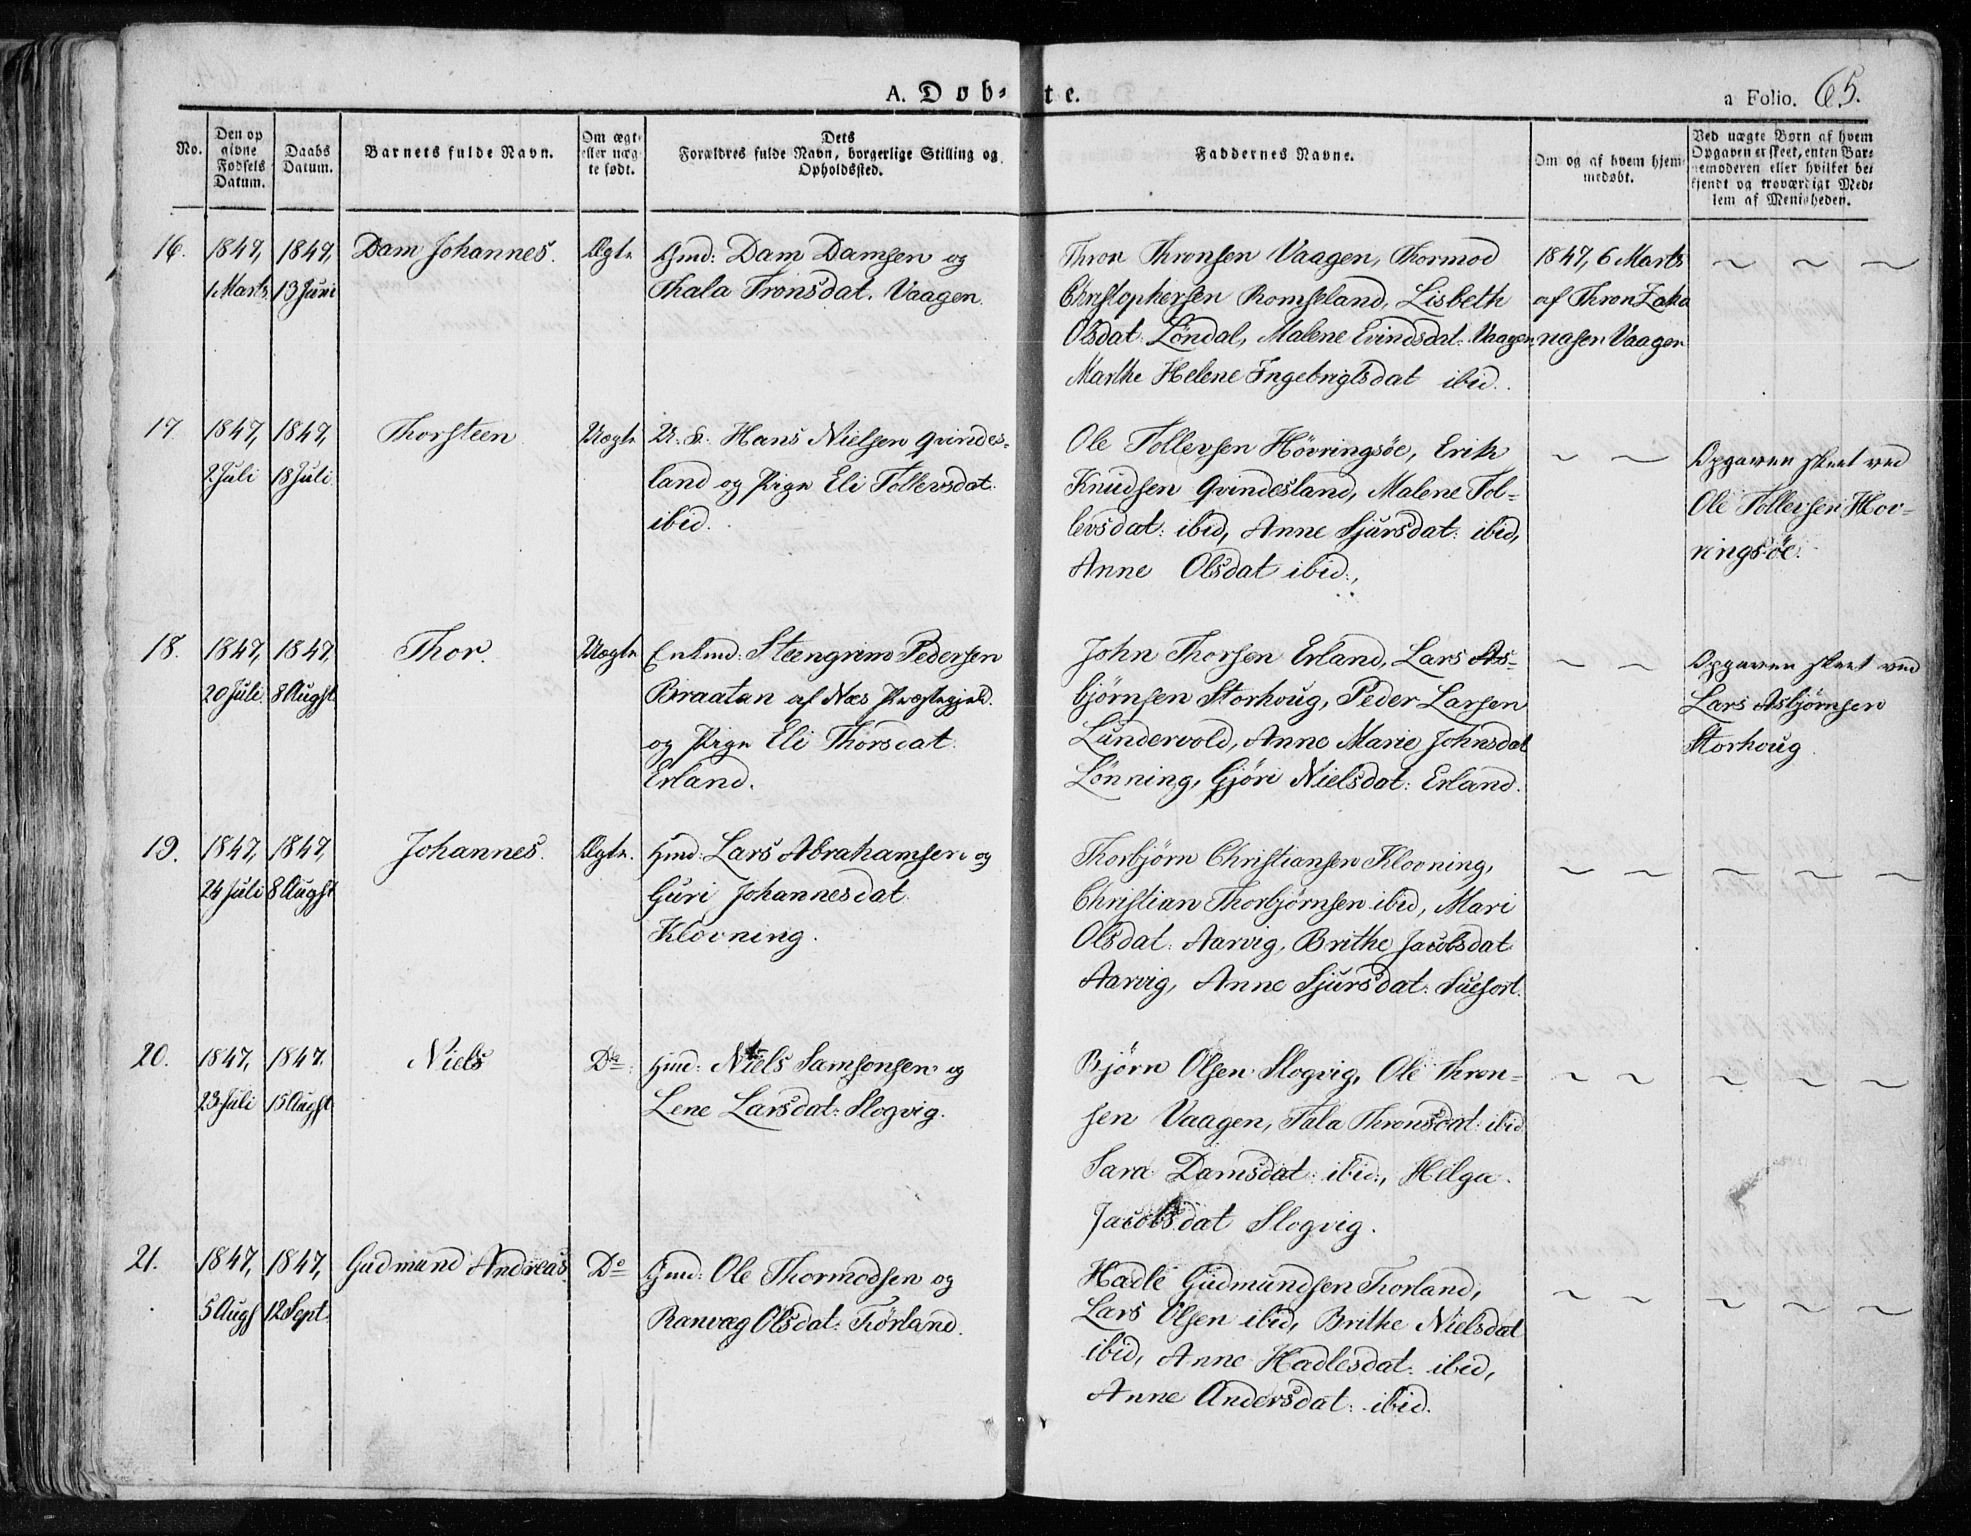 A. Døbte.
a Folio. 65.
No.
Den op
givne
Fødsels
Datum.
Daabs
Datum.
Barnets fulde Navn.
Om ægte
eller uæg-
te født.
Dets
Forældres fulde Navn, borgerlige Stilling og
Opholdssted.
Faddernes Navne.
Om og af hvem hjem-
medøbt.
Ved uægte Born af hvem
Opgaven er skeet, enten Bar-
nemoderen eller hvilket be-
kjendt og troværdigt Med-
lem af Menigheden.
16.
1847,
1 Marts
1847,
13 Juni
Dam Johannes.
Ægte
Gmd: Dam Damsen og
Thala Tronsdat. Vaagen.
Thron Thronsen Vaagen, Thormod
Christophersen Romseland, Lisbeth
Olsdat: Løndal, Malene Evindsdat: Vaagen,
Marthe Helene Ingebrigtsdat ibid.
1847, 6 Marts
af Thron Zaka
nasen Vaagen
17
1847,
2 Juli
1847,
18 Juli
Thorsteen
Uægte
U. K: Hans Nielsen Qvindes-
land og Pige Eli Tollevsdat:
ibid.
Ole Tollevsen Hövringsöe, Erik
Knudsen Qvindesland, Malene Tol-
levsdat: ibid, Anne Sjursdat: ibid,
Anne Olsdat ibid.,
Opgaven skeet ved
Ole Tollevsen Hov-
ringsöe.
18.
1847,
20 Juli
1847,
8 Augst
Thor.
Uægte
Enkmd: Steengrim Pedersen
Braaten af Næs Præstegjeld.
og Pige Eli Thorsdat:
Erland.
John Thorsen Erland, Lars As-
bjørnsen Storhoug, Peder Larsen
Lundervold, Anne Marie Johnsdat
Lönning, Gjöri Nielsdat: Erland.
Opgaven skeet ved
Lars Asbjørnsen
Storhoug.
19.
1847,
24 Juli
1847,
8 Augst
Johannes.
Ægte.
Gmd: Lars Abrahamsen og
Guri Johannesdat:
Klovning.
Thorbjørn Christiansen Klovning,
Christian Thorbjørnsen ibid, Mari
Olsdat: Aarvig, Brithe Jacobsdat
Aarvig, Anne Sjursdat:
20.
1847,
23 Juli
1847.
15 Augst
Niels
Do
Gmd: Niels Samsonsen og
Lene Larsdat: Slogvig.
Bjørn Olsen Slogvig, Ole Thron-
sen Vaagen, Tala Thronsdat: ibid
Sara Damsdat: ibid:, Helga
Jacobsdat Slogvig.
21.
1847,
5 Augs
1847,
12 Sept.
Gudmund Andreas
Do
Gmd: Ole Thormodsen og
Ranvæg Olsdat: Tørland.
Hadle Gudmundsen Torland,
Lars Olsen ibid, Brithe Nielsdat
ibid, Anne Hadlesdat: ibid,
Anne Andersdat: ibid.